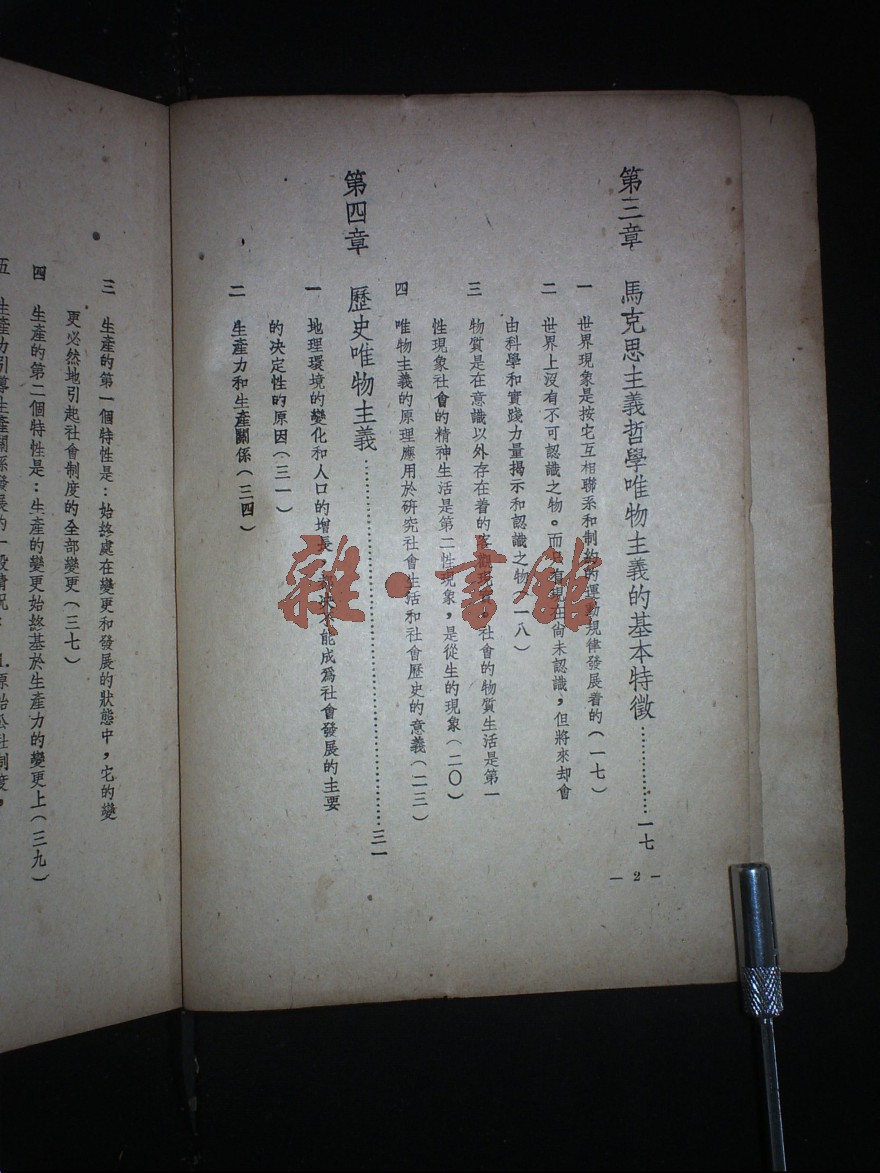 第三章 馬克思主義哲學唯物主義的基本特徵…………一七
一 世界現象是按它互相聯系和制約的運動規律發展着的(一七)
二 世界上沒有不可認識之物。而只有現在尚未認識,但將來却會
由科學和實踐力量揭示和認識之物(一八)
三 物質是在意識以外存在着的客觀現實。社會的物質生活是第一
性現象社會的精神生活是第二性現象,是從生的現象(二〇)
四 唯物主義的原理應用於研究社會生活和社會歷史的意義(二三)
第四章 歷史唯物主義…………三一
一 地理環境的變化和人口的增長 決不能成爲社會發展的主要
的決定性的原因(三一)
二 生產力和生產關係(三四)
— 2 —
三 生產的第一個特性是:始終處在變更和發展的狀態中,它的變
更必然地引起社會制度的全部變更(三七)
四 生產的第二個特性是:生產的變更始終基於生產力的變更上(三九)
五 生產力引導生產關係發展的一般情況:1.原始公社制度,
雜·書館